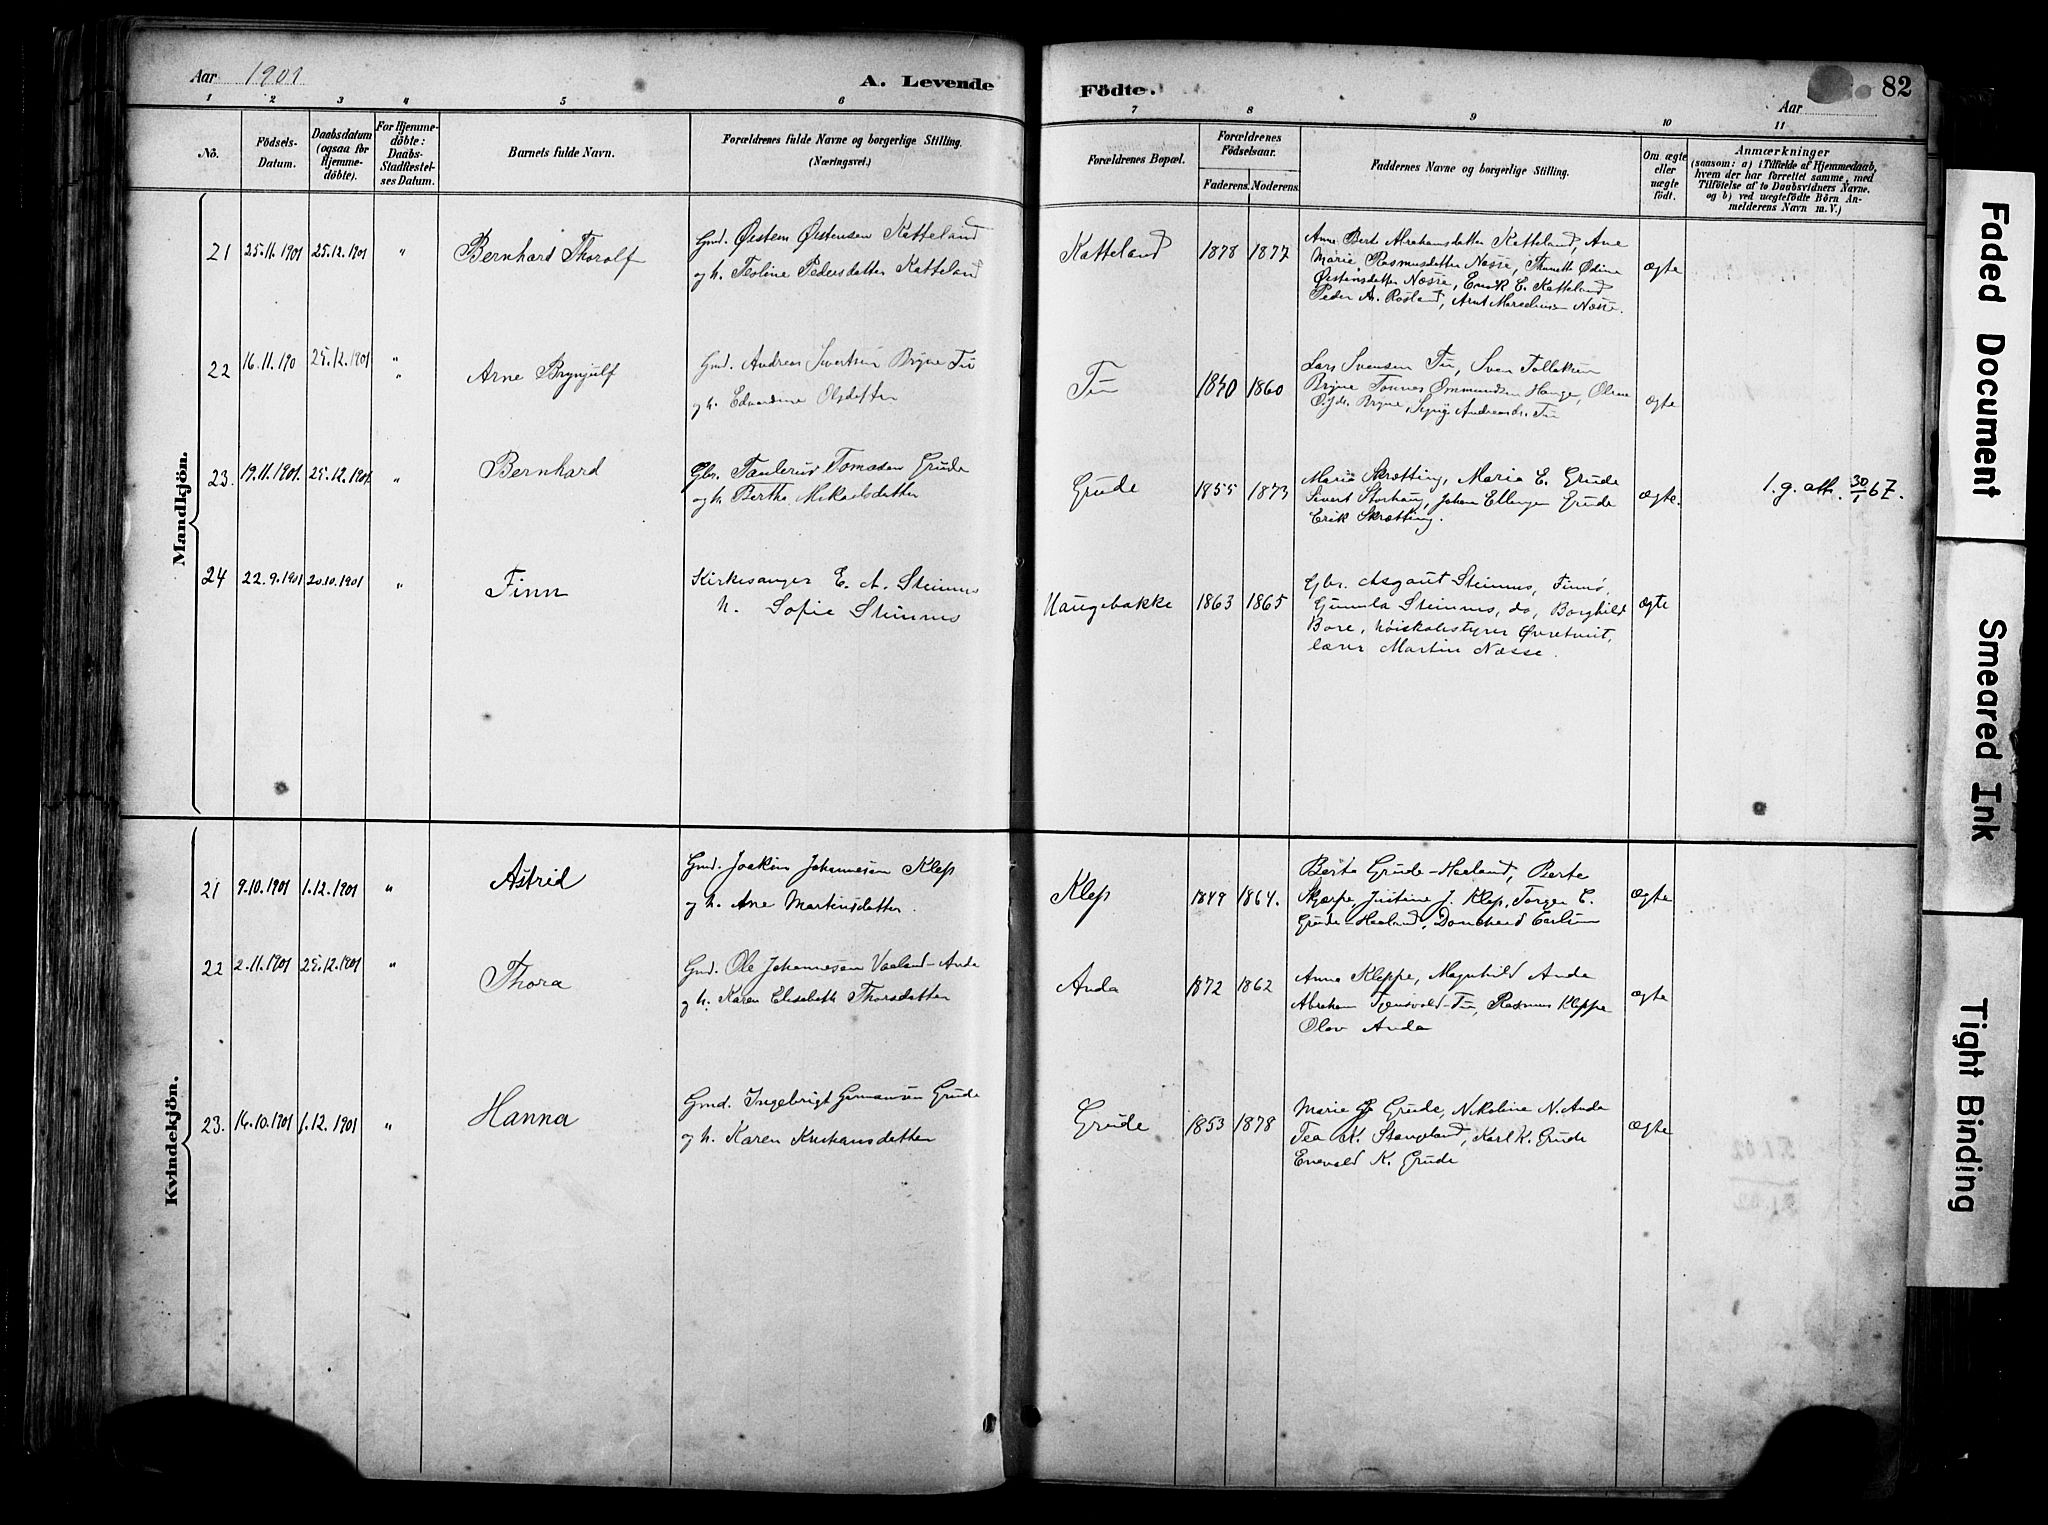 Aar 1901
A. Levende
Födte.
Aar
82
1 2 3 4 5 6 7 8 9 10 11
No.
Födsels-Datum.
Daabsdatum (ogsaa for Hjemme-döbte).
For Hjemme-döbte: Daabs-Stadfæstel-ses Datum.
Barnets fulde Navn.
Forældrenes fulde Navne og borgerlige Stilling.
(Næringsvei.)
Forældrenes Bopæl.
Forældrenes Födselsaar.
Faderens. Moderens.
Faddernes Navne og borgerlige Stilling.
Om ægte eller uægte födt.
Anmærkninger
(saasom: a) i Tilfælde af Hjemmedaab, hvem der har forrettet samme, med Tilföielse af to Daabsvidners Navne. og b) ved uægtefödte Börn An-melderens Navn m. V.)
Mandkjön.
21 25.11.1901 25.12.1901 " Bernhard Thorolf
Gmd. Østen Østensen Katteland
og h. Teoline Pedersdatter Katteland
Katteland 1878 1877
Anne Berte Abrahamsdatter Katteland, Ane
Marie Rasmusdatter Næsse, Thunette Odine
Østensdatter Næsse, Enok E. Katteland
Peder A. Rosland, Arnt Marselius Næsse.
ægte
22 16.11.190 25.12.1901 " " Arne Brynjulf
Gmd. Andreas Sivertsen Bryne Tu
og h. Edvardine Olsdatter
Tu 1840 1860
Lars Svensen Tu, Sven Tollaksen
Bryne Tønnes Ommundsen Hauge, Olene
Bryne, Andreasdr. Tu
ægte
23. 19.11.1901. 25.12.1901 " Bernhard
Gbr. Taulerus Tomasen Grude
og h. Berthe Mikaelsdatter
Grude 1855 1873
Maria Skrætting, Maria E. Grude
Sivert Storhaug, Johan Ellingsen Grude
Erik Skrætting.
ægte.
l. g. att. 30/1 67.
24 22.9.1901 20.10.1901 " Finn
Kirkesanger E. A. Steinnes
h. Sofie Steinnes
Haugebakke 1863 1865
Gbr. Asgaut Steinnes, Finnø,
Gunnla Steinnes, do, Borghild
Bore, høiskolestyrer Øvretveit,
lærer Martin Næsse.
ægte
Kvindekjön.
21 9.10.1901 1.12.1901 " Astrid
Gmd. Joakim Johannesen Klep
og h. Ane Martinsdatter.
Klep 1849 1864.
Berta Grude-Haaland, Berte
Skjærpe, Justine J. Klep, Torger E.
Grude-Haaland,
ægte
22 2.11.1901 25.12.1901 " Thora
Gmd. Ole Johannesen Vaeland-Anda
og h. Karen Elisabeth Thorsdatter
Anda 1872 1862
Anna Kleppe, Magnhild Anda
Abraham Tjensvold-Tu, Rasmus Kleppe
Olav Anda
ægte
23. 14.10.1901 1.12.1901 " Hanna
Gmd. Ingebrigt Gunnansen Grude
og h. Karen Kristiansdatter
Grude 1853 1878
Marie G. Grude, Nikoline N. Anda
Tea K. Stangeland, Karl K. Grude
Enevald K. Grude
ægte
Faded Document
Smeared Ink
Tight Binding